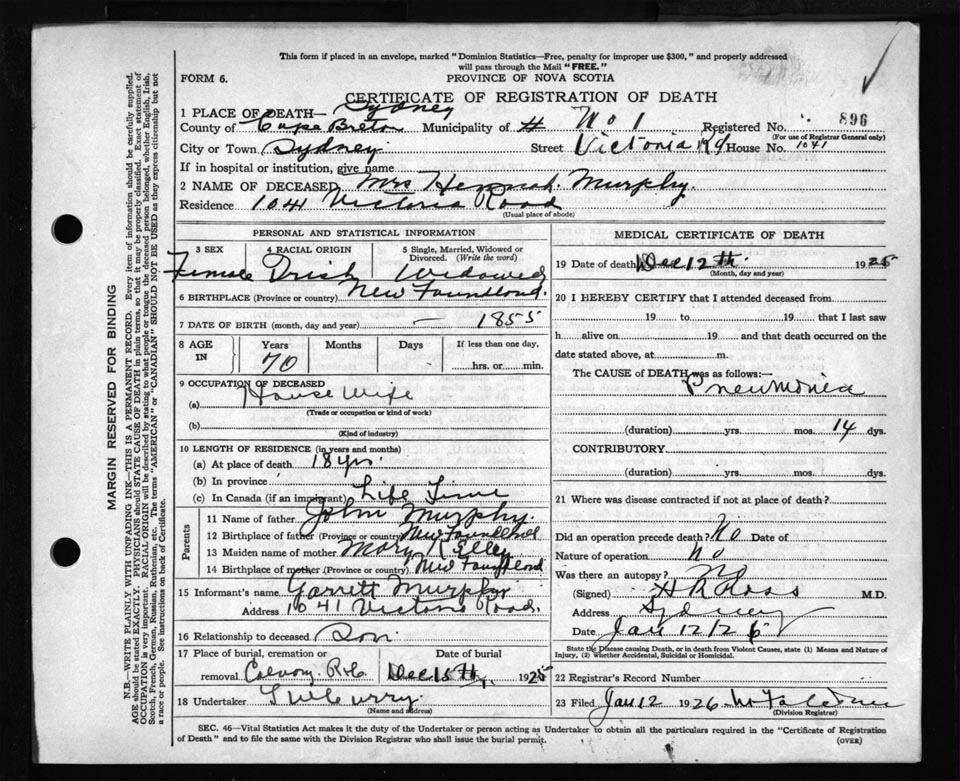 This form if placed in an envelope, marked "Dominion Statistics—Free, penalty for improper use $300," and properly addressed
will pass through the Mail "FREE."
FORM 6.
PROVINCE OF NOVA SCOTIA
CERTIFICATE OF REGISTRATION OF DEATH
1 PLACE OF DEATH— Sydney
County of Cape Breton Municipality of # No 1 Registered No. 896
(For use of Registrar General only)
City or Town Sydney Street Victoria Rd House No. 1041
If in hospital or institution, give name
2 NAME OF DECEASED Mrs Hennah Murphy.
Residence 1041 Victoria Road
(Usual place of abode)
PERSONAL AND STATISTICAL INFORMATION
3 SEX 4 RACIAL ORIGIN 5 Single, Married, Widowed or Divorced. (Write the word)
Female Irish Widowed
6 BIRTHPLACE (Province or country) New Foundlond.
7 DATE OF BIRTH (month, day and year) — 1855
8 AGE IN Years Months Days If less than one day,
70 hrs. or min.
9 OCCUPATION OF DECEASED
(a) House Wife
(Trade or occupation or kind of work)
(b)
(Kind of industry)
10 LENGTH OF RESIDENCE (in years and months)
(a) At place of death 18 yrs.
(b) In province
(c) In Canada (if an immigrant) Life Time
Parents
11 Name of father John Murphy.
12 Birthplace of father (Province or country) New Foundlnd
13 Maiden name of mother Mary Kelley
14 Birthplace of mother (Province or country) New Foundlond
15 Informant's name Garrett Murphy
Address 1041 Victoria Road.
16 Relationship to deceased Son.
17 Place of burial, cremation or Date of burial
removal Calvary R.C. Dec 15th, 1925
18 Undertaker
(Name and address)
MEDICAL CERTIFICATE OF DEATH
19 Date of death Dec 12th. 1925
(Month, day and year)
20 I HEREBY CERTIFY that I attended deceased from
19 to 19 that I last saw
h alive on 19 and that death occurred on the
date stated above, at m.
The CAUSE OF DEATH was as follows:—
Pneumonia
(duration) yrs. mos. 14 dys.
CONTRIBUTORY
(duration) yrs. mos. dys.
21 Where was disease contracted if not at place of death?
Did an operation precede death? No Date of
Nature of operation No
Was there an autopsy? No
(Signed) H R Ross M.D.
Address Sydney
Date Jan 12/26
State the Disease causing Death, or in death from Violent Causes, state (1) Means and Nature of
Injury, (2) whether Accidental, Suicidal or Homicidal.
22 Registrar's Record Number
23 Filed Jan 12 1926
(Division Registrar)
SEC. 46—Vital Statistics Act makes it the duty of the Undertaker or person acting as Undertaker to obtain all the particulars required in the "Certificate of Registration
of Death" and to file the same with the Division Registrar who shall issue the burial permit.
(OVER)
MARGIN RESERVED FOR BINDING
N.B.—WRITE PLAINLY WITH UNFADING INK—THIS IS A PERMANENT RECORD. Every item of information should be carefully supplied.
AGE should be stated EXACTLY. PHYSICIANS should STATE CAUSE OF DEATH in plain terms, so that it may be properly classified. Exact statement of
OCCUPATION is very important. RACIAL ORIGIN will be described by stating to what people or tongue the deceased person belonged, whether English, Irish,
Scotch, French, German, Russian, Ruthenian, etc. The terms "AMERICAN" or "CANADIAN" SHOULD NOT BE USED as they express citizenship but not
a race or people. See instructions on back of Certificate.